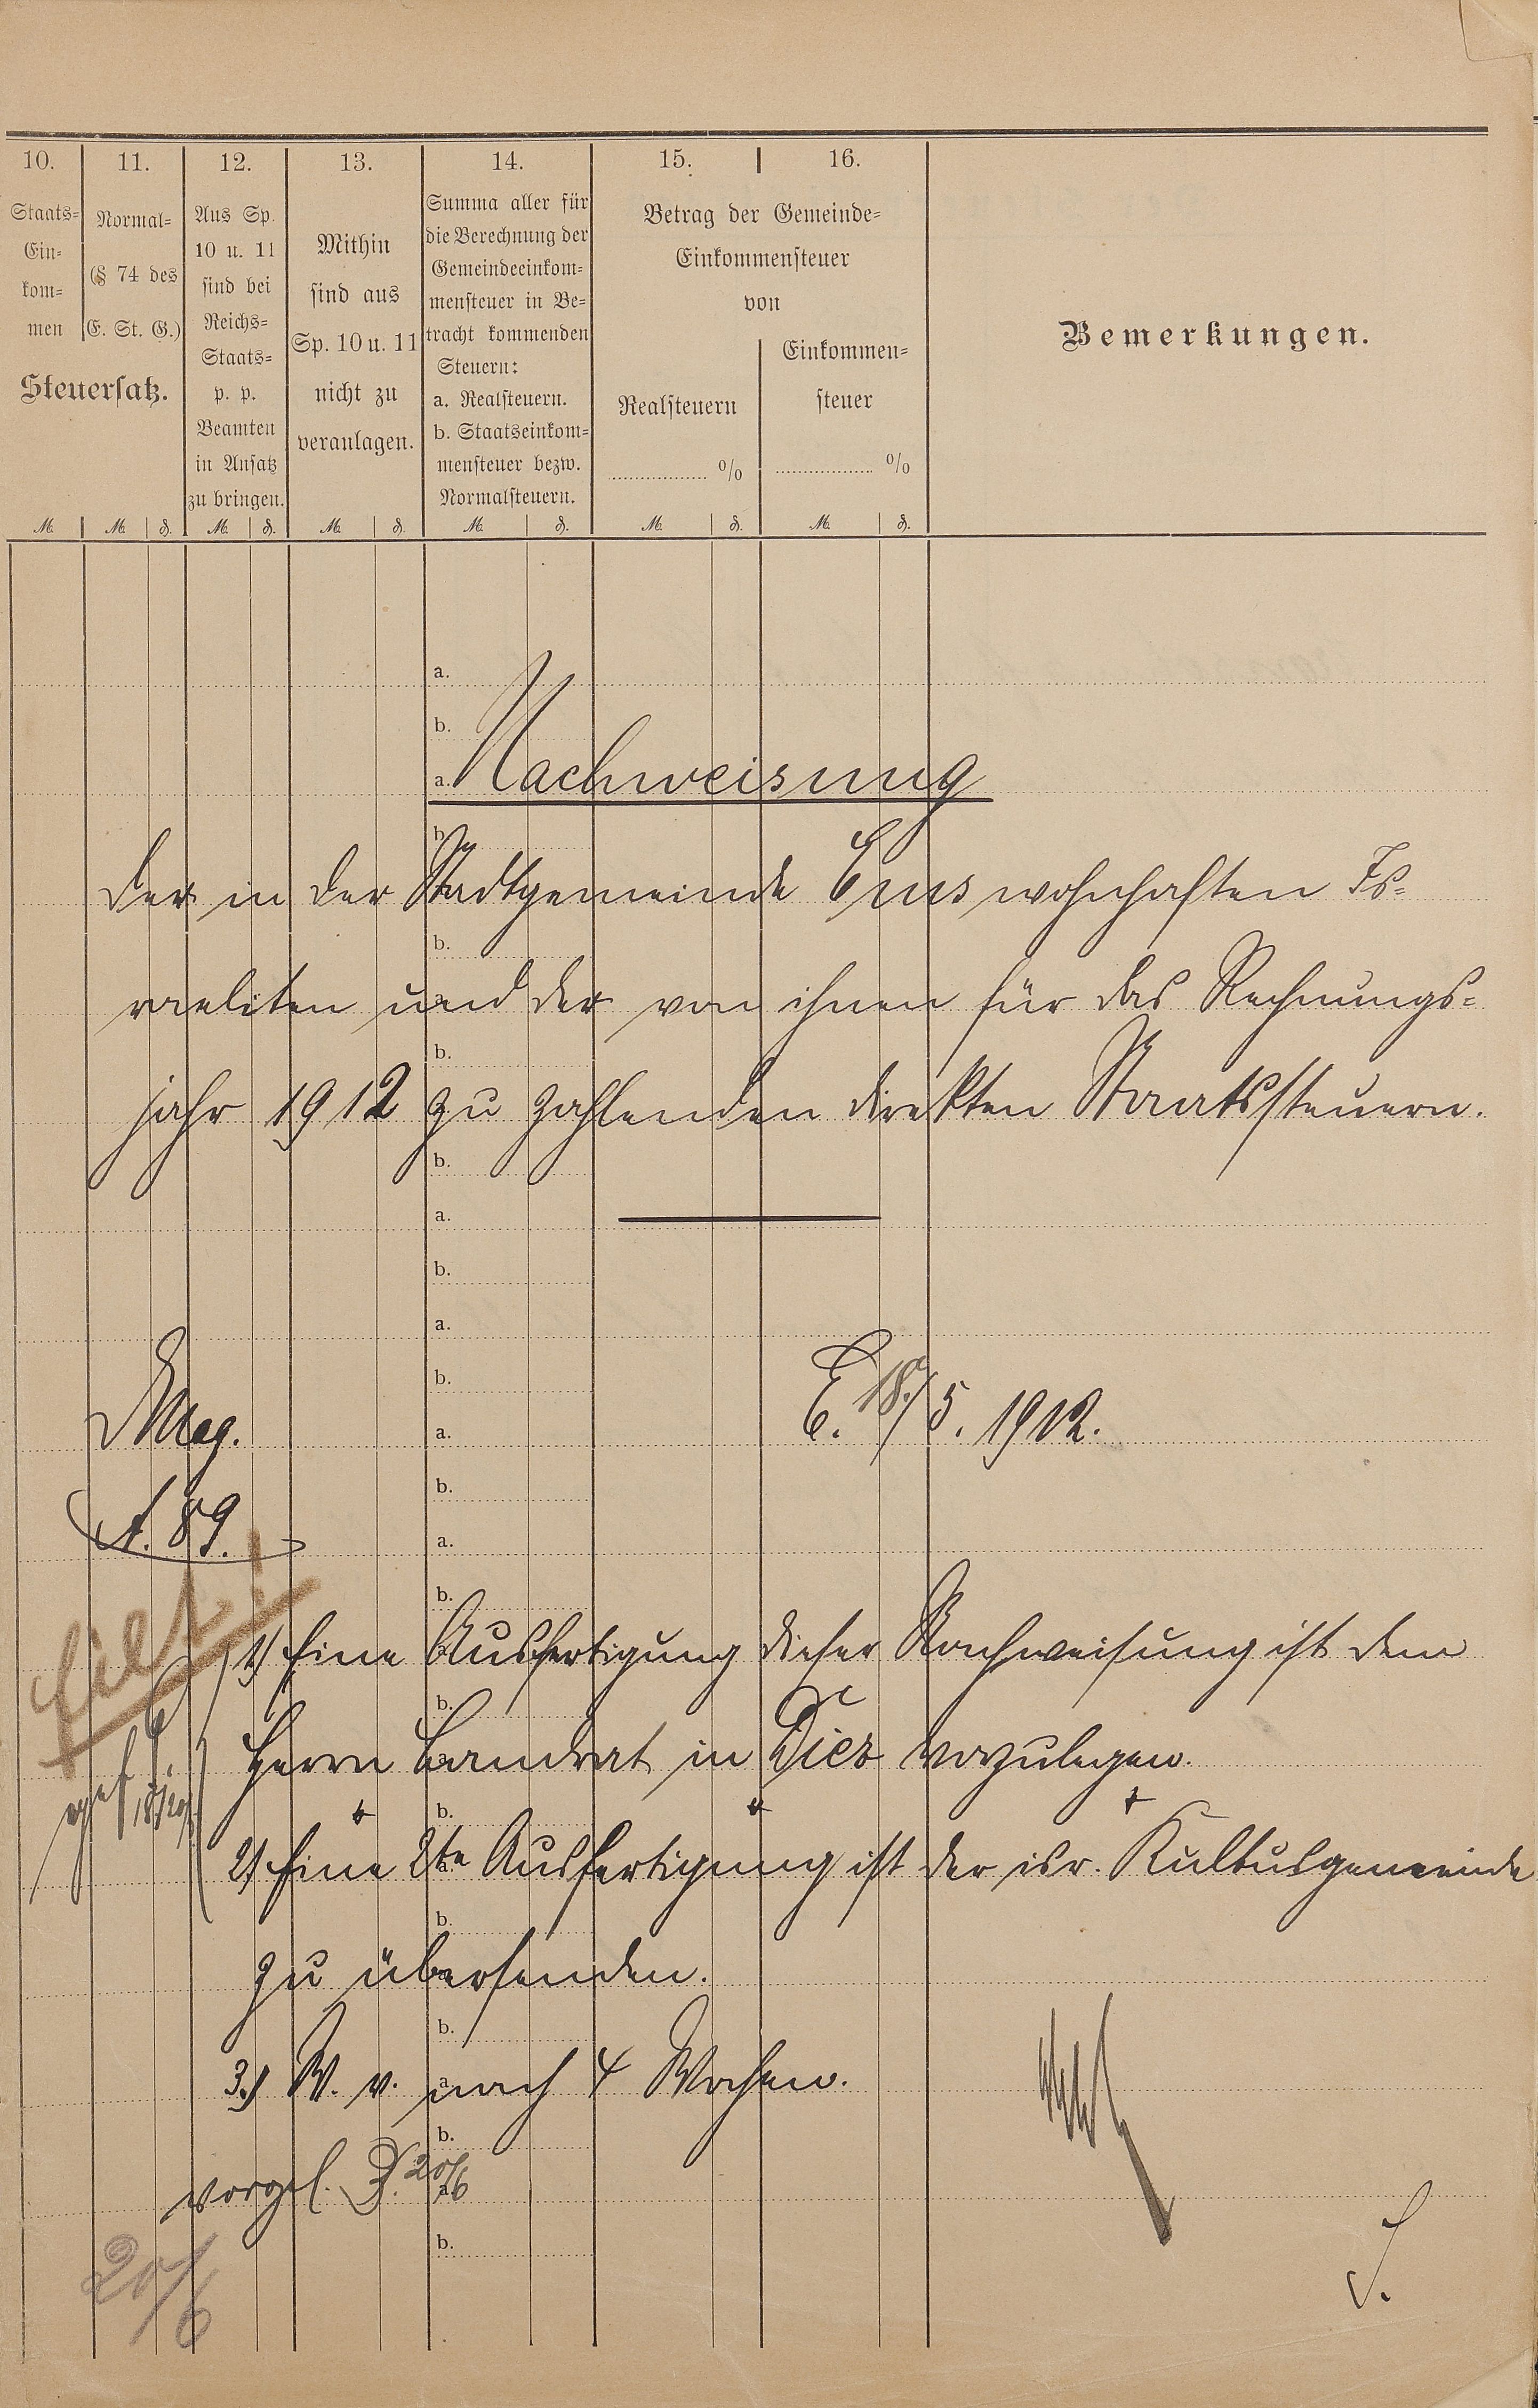 10.
11.
12.
13.
14.
15.
16.
Staats-
Ein-
kom-
men
Normal-
(§ 74 des
E. St. G.)
Steuersatz.
Aus Sp.
10 u. 11
sind bei
Reichs-
Staats-
p. p.
Beamten
in Ansatz
zu bringen.
Mithin
sind aus
Sp. 10 u. 11
nicht zu
veranlagen.
Summa aller für
die Berechnung der
Gemeindeeinkom-
mensteuer in Be-
tracht kommenden
Steuern:
a. Realsteuern.
b. Staatseinkom-
mensteuer bezw.
Normalsteuern.
Betrag der Gemeinde-
Einkommensteuer
von
Realsteuern
%
Einkommen-
steuer
%
Bemerkungen.
M. M. ₰. M. ₰. M. ₰. M. ₰. M. ₰. M. ₰.
a.
b.
a. Nachweisung
b.
der in der Stadtgemeinde Ems wohnhaften Is-
b.
raeliten und der von ihnen für das Rechnungs-
b.
jahr 1912 zu zahlenden direkten Staatssteuern.
b.
a.
b.
a.
b.
Mag. E. 18./5. 1912.
a.
b.
A. 89.
a.
b.
1) Eine Ausfertigung dieser Nachweisung ist dem
b.
Herrn Landrat in Diez vorzulegen.
b.
2) Eine 2te Ausfertigung ist der isr. Kultusgemeinde
b.
zu übersenden.
b.
3.) W. v. nach 4 Wochen.
b.
vorgel. 20/6
a.
b.
20/6